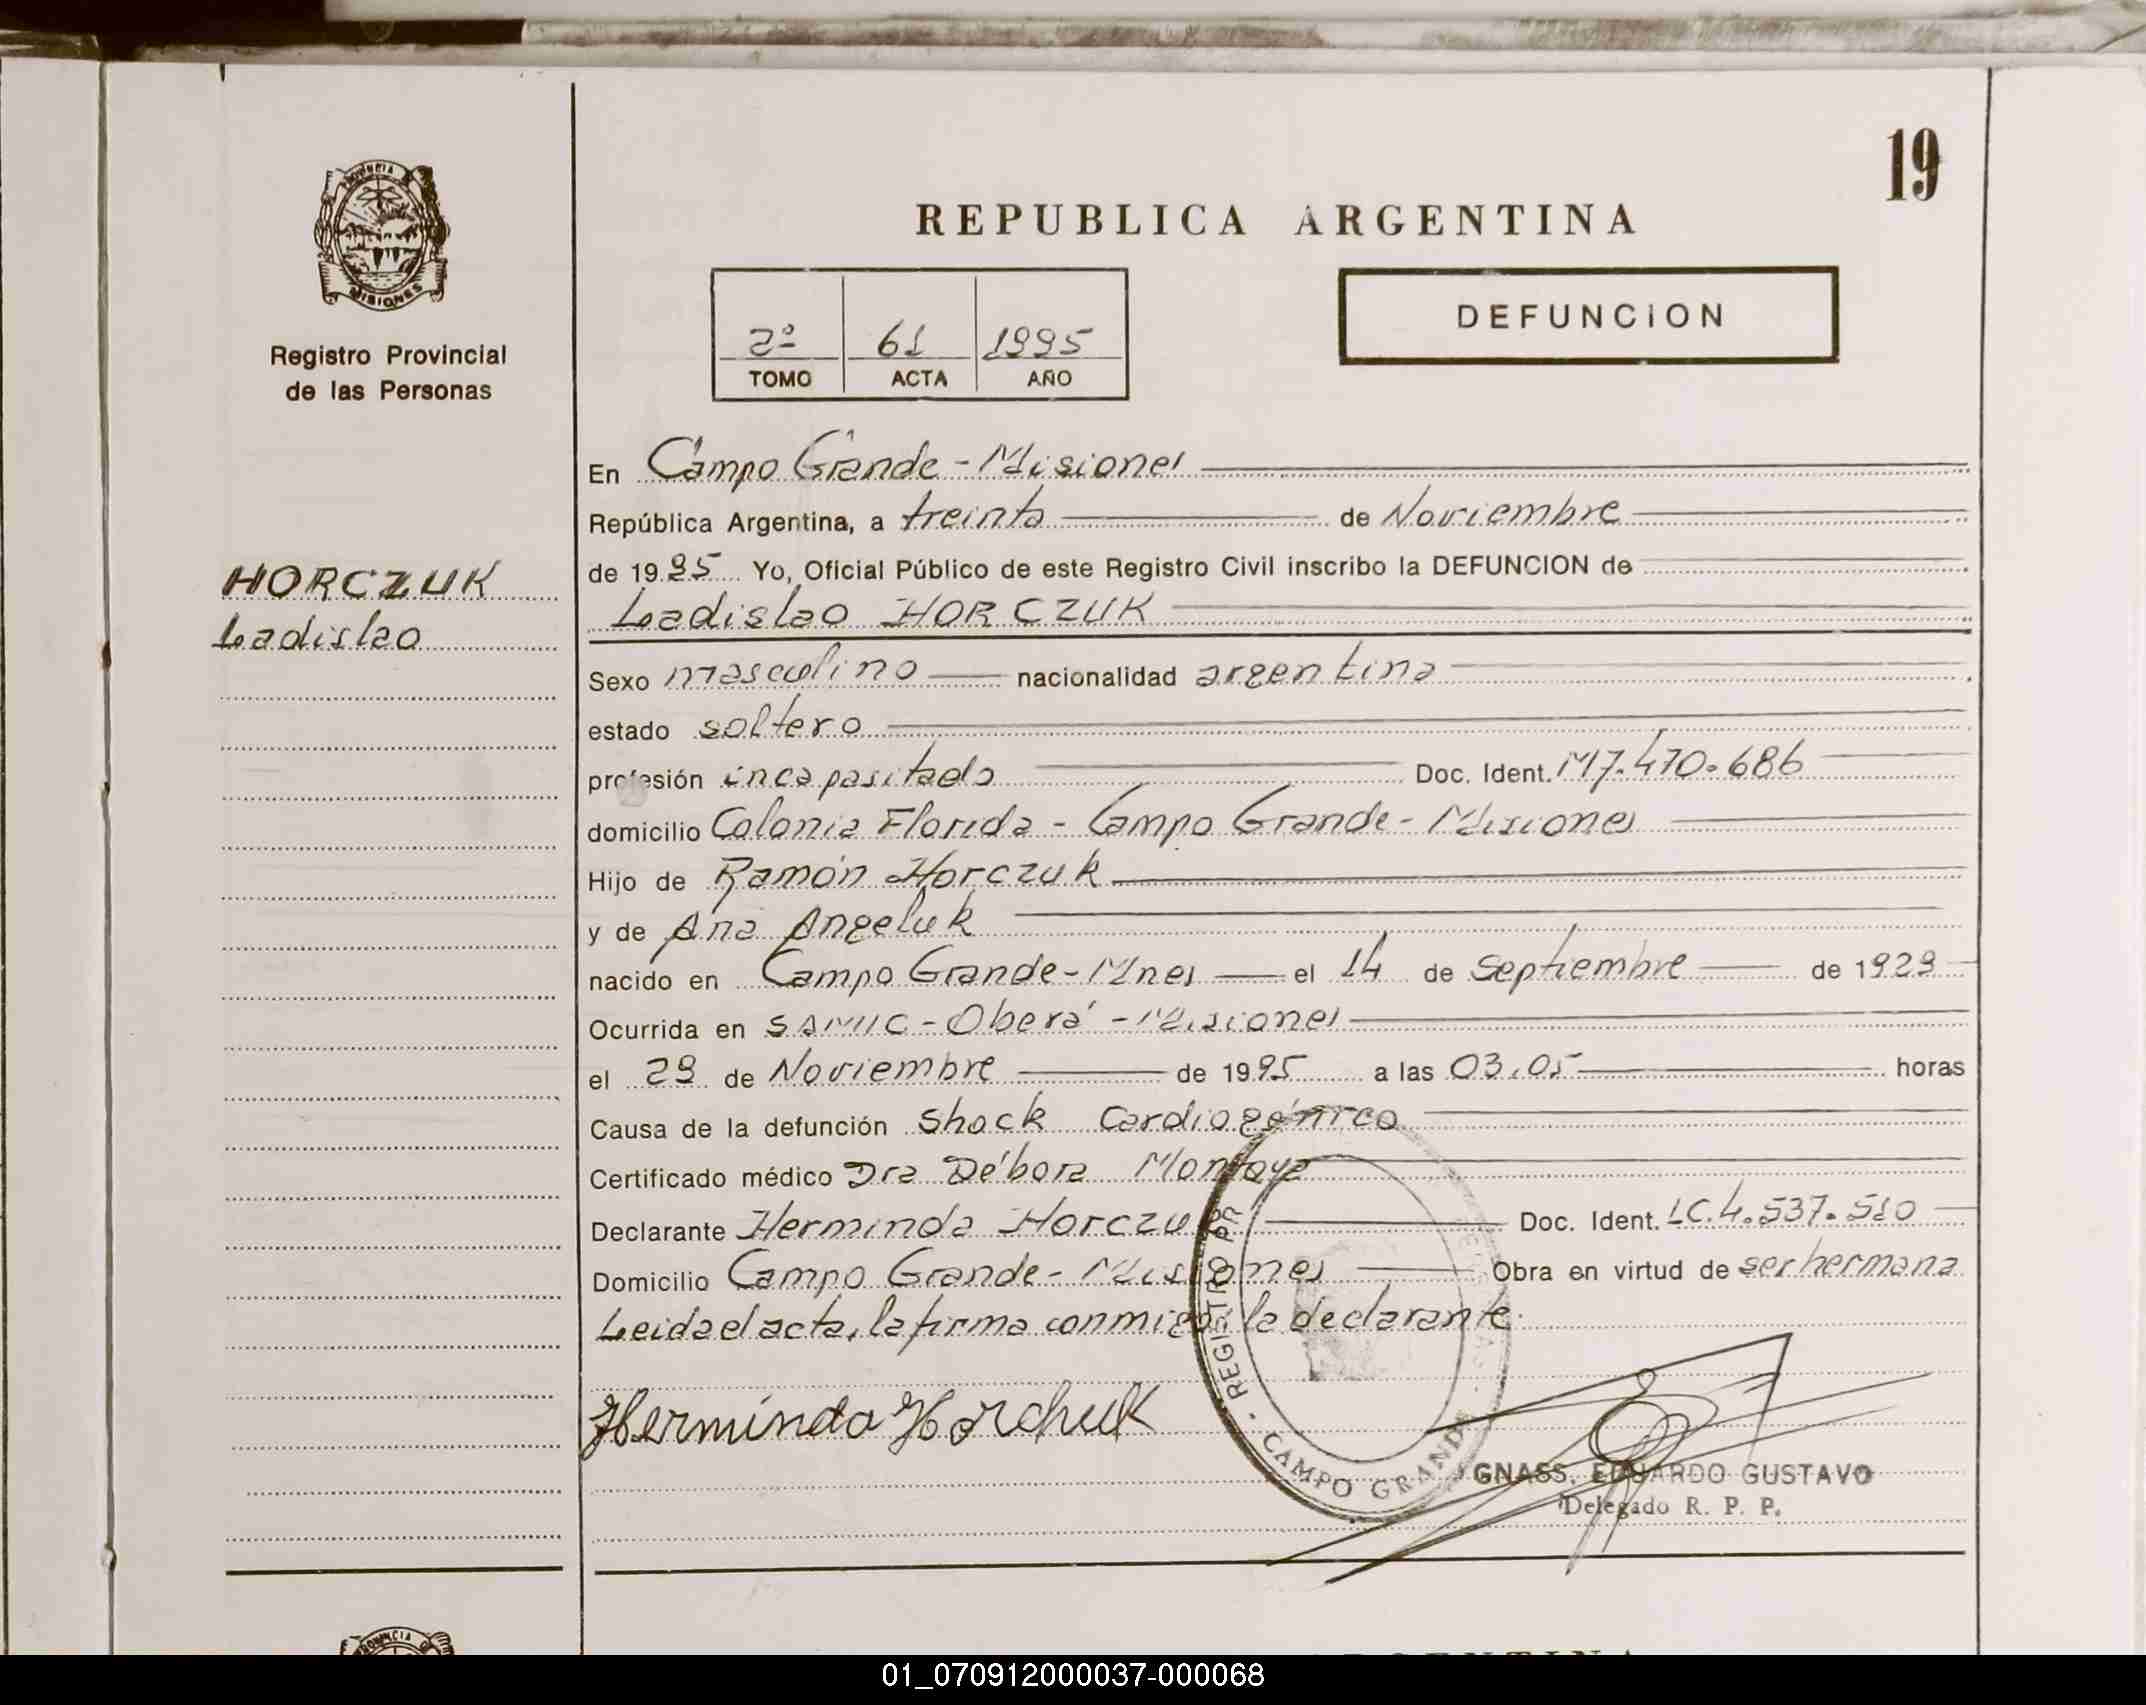 19
REPUBLICA ARGENTINA
PROVINCIA DE
MISIONES
Registro Provincial
de las Personas
2º 61 1995
TOMO ACTA AÑO
DEFUNCION
HORCZUK
Ladislao
En Campo Grande - Misiones
República Argentina, a treinta de Noviembre
de 1995 Yo, Oficial Público de este Registro Civil inscribo la DEFUNCION de
Ladislao HORCZUK
Sexo masculino nacionalidad argentina
estado soltero
profesión incapasitado Doc. Ident. M7.470.686
domicilio Colonia Florida - Campo Grande - Misiones
Hijo de Ramón Horczuk
y de Ana Angeluk
nacido en Campo Grande - Mnes el 14 de Septiembre de 1929
Ocurrida en SAMIC - Oberá - Misiones
el 29 de Noviembre de 1995 a las 03,05 horas
Causa de la defunción Shock Cardiogénico
Certificado médico Dra Débora Montoya
Declarante Herminda Horczuk Doc. Ident. LC.4.537.510
Domicilio Campo Grande - Misiones Obra en virtud de ser hermana
Leida el acta, la firma conmigo la declarante.
Herminda Horchuk
REGISTRO PR
CAMPO GRANDE
GNASS, EDUARDO GUSTAVO
Delegado R. P. P.
PROVINCIA
01_070912000037-000068